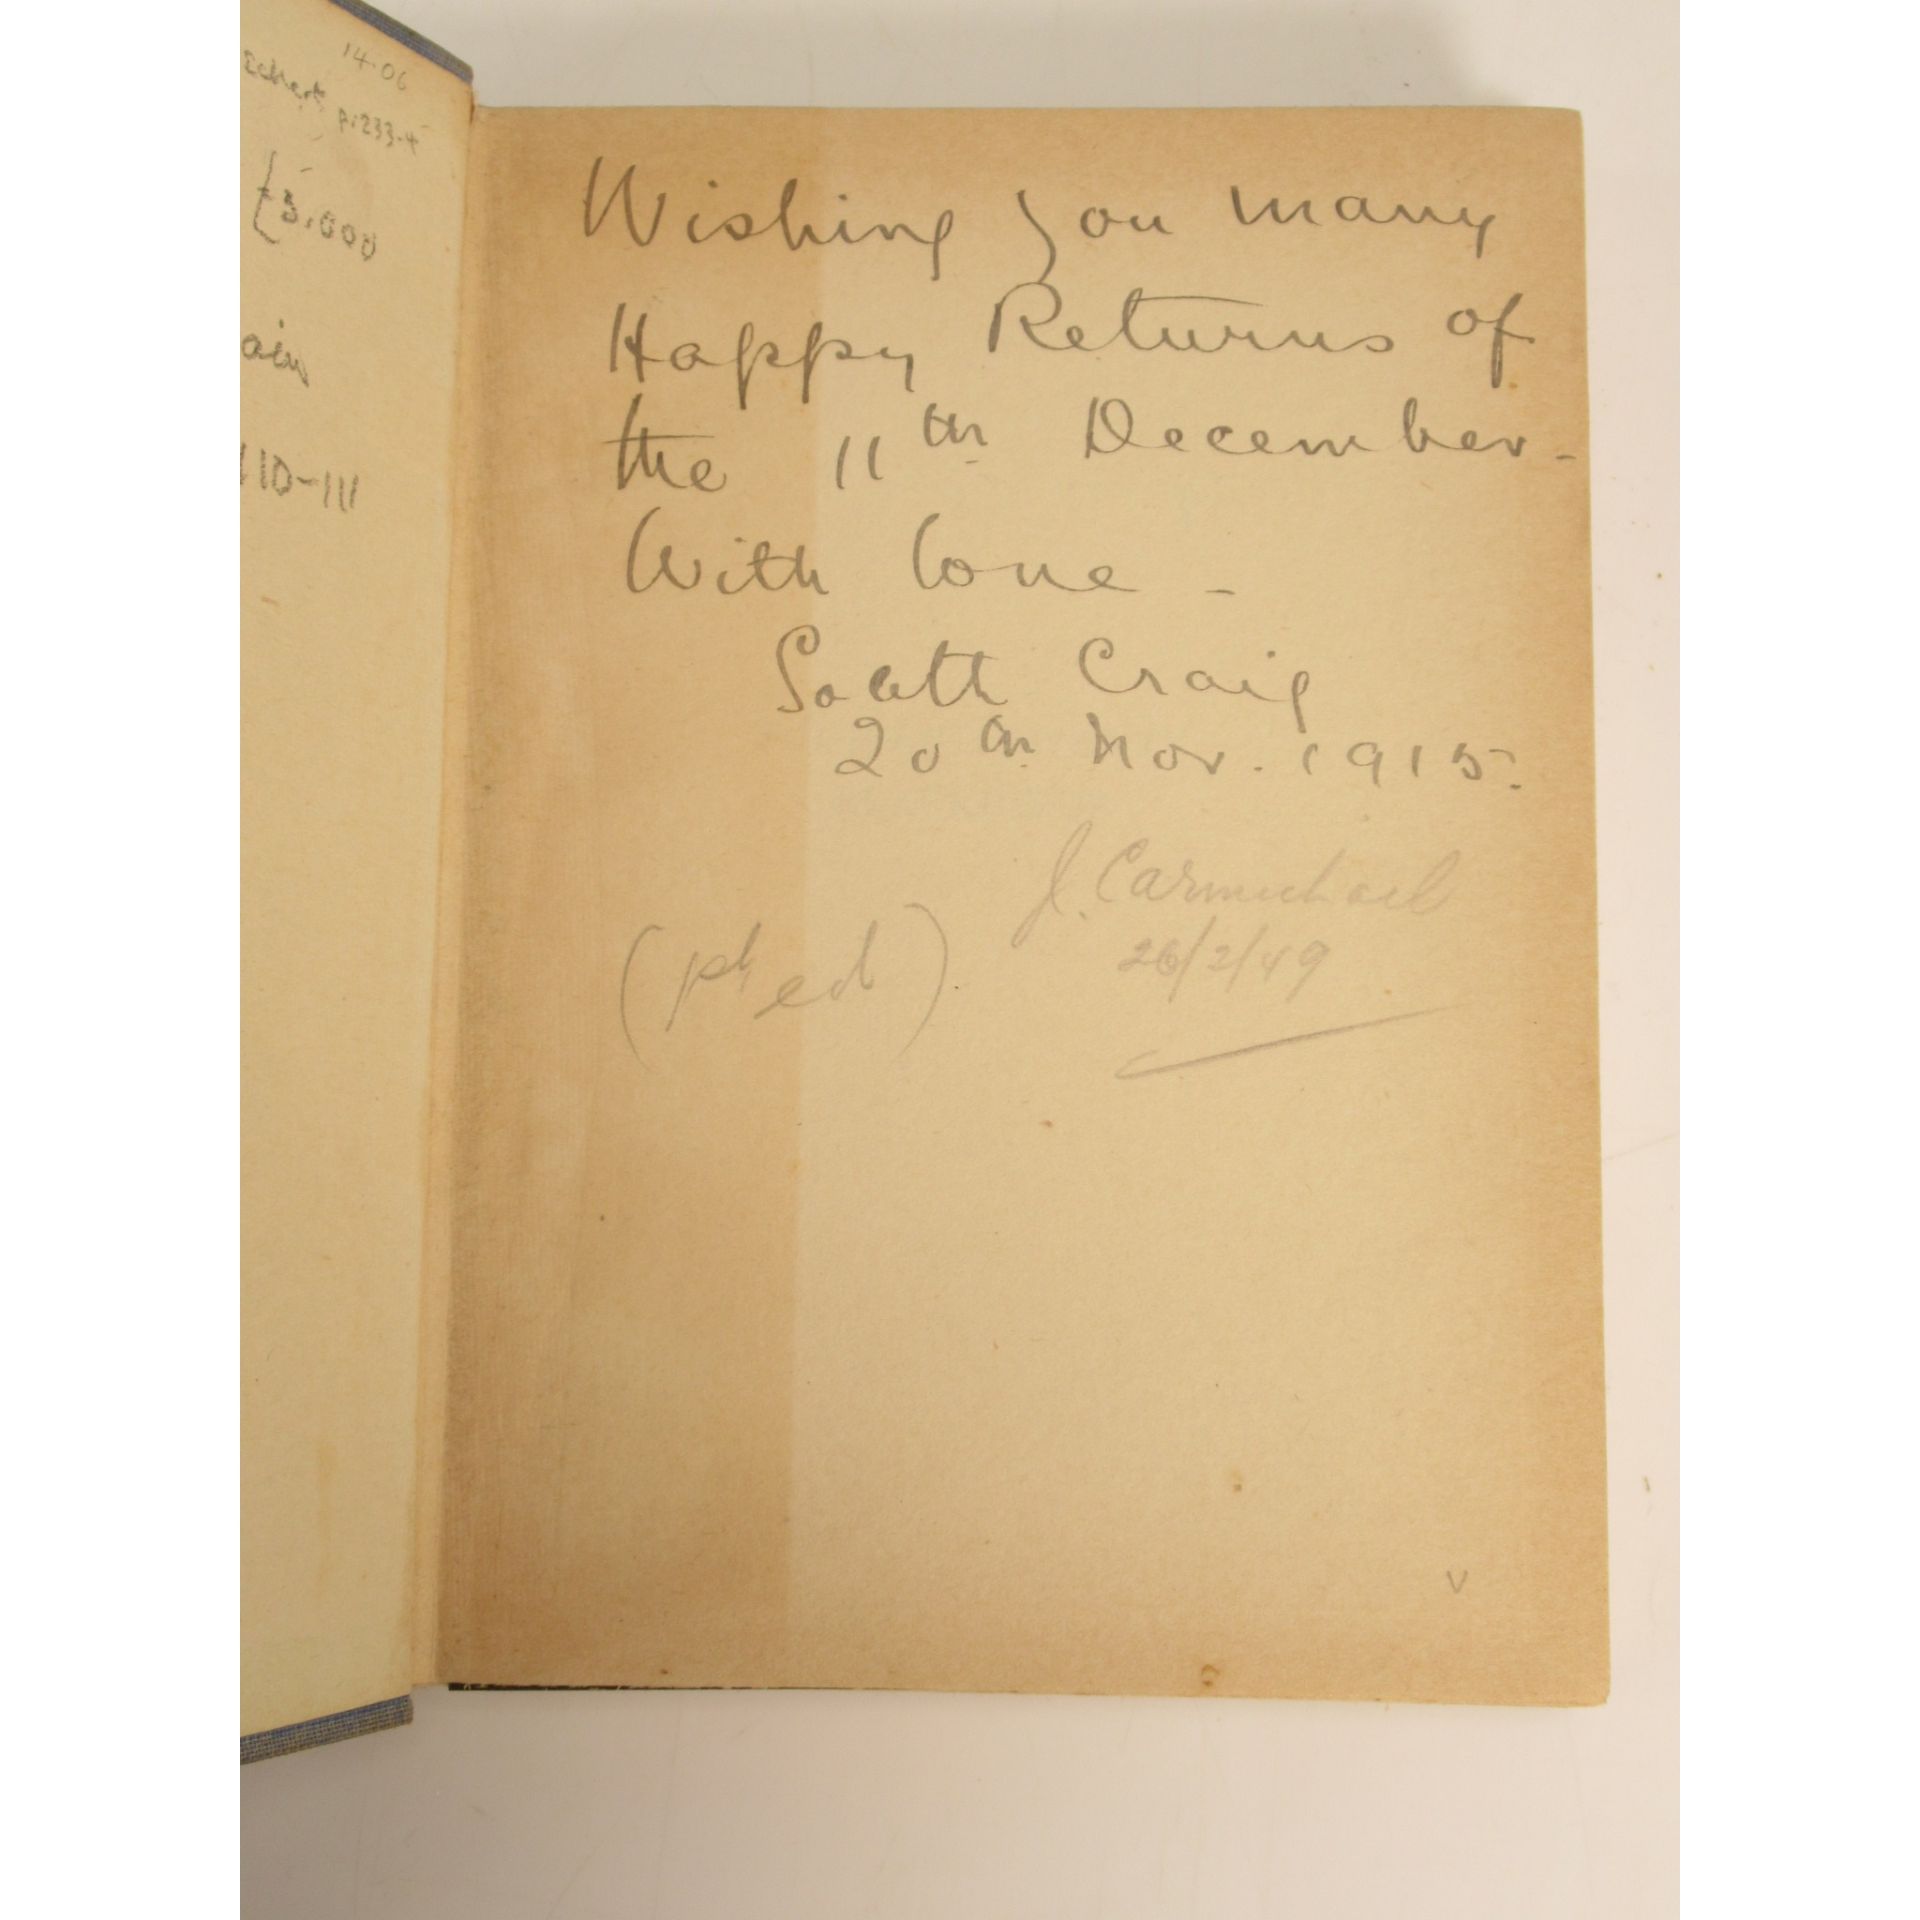 14.06
Eckert
p.233-4
£5,000
ain
110-111
Wishing you many
Happy Returns of
the 11th December.
With love -
South Craig
20th Nov. 1915.
J. Carmichael
26/2/49
ed)
v